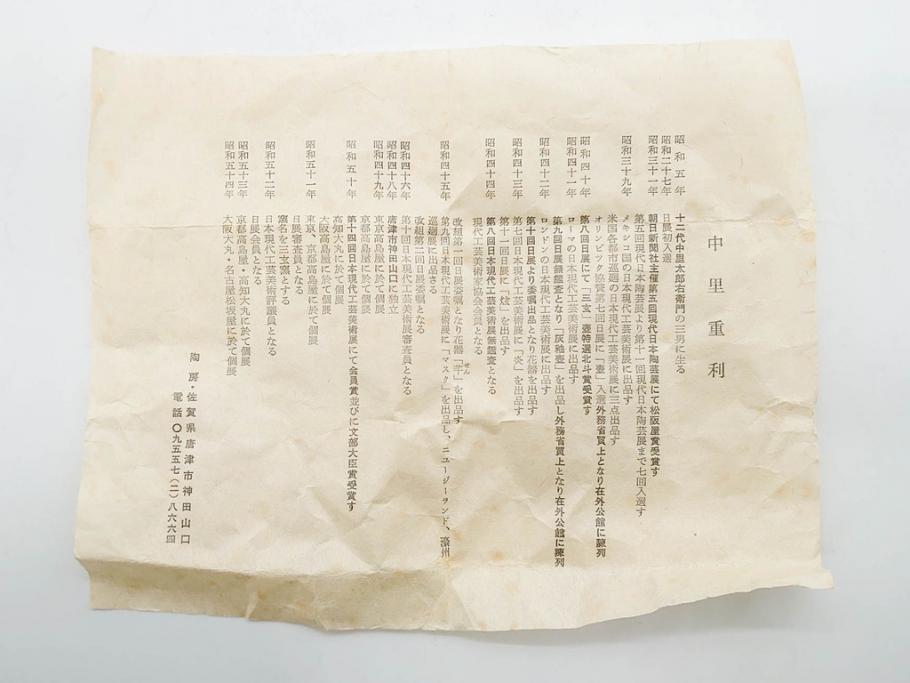 中里重利
昭和五年 十二代中里太郎右衛門の三男に生る
昭和二十七年 日展初入選
昭和三十一年 朝日新聞社主催第五回現代日本陶芸展にて松坂屋賞受賞す
第五回現代日本陶芸展より第十一回現代日本陶芸展まで七回入選す
昭和三十九年 メキシコ国の日本現代工芸美術展に出品す
米国各都市巡廻の日本現代工芸美術展に三点出品す
オリンピツク協賛第七回日展に「壷」入選外務省買上となり在外公館に陳列
昭和四十年 第八回日展にて「三玄」壷特選北斗賞受賞す
昭和四十一年 ローマの日本現代工芸美術展に出品す
第九回日展無鑑査となり「灰釉壷」を出品し外務省買上となり在外公館に陳列
昭和四十二年 ロンドンの日本現代工芸美術展に出品す
第十回日展より委嘱出品となり花器を出品す
昭和四十三年 第七回日本現代工芸美術展に「炎」を出品す
第十一回日展に「炷」を出品す
昭和四十四年 第八回日本現代工芸美術展無鑑査となる
現代工芸美術家協会会員となる
改組第一回日展委嘱となり花器「」を出品す
昭和四十五年 第九回日本現代工芸美術展に「マスク」を出品し、ニュージーランド、濠州
巡廻展に出品さる
改組第二回日展委嘱となる
昭和四十六年 第十回日本現代工芸美術展審査員となる
昭和四十八年 唐津市神田山口に独立
昭和四十九年 東京高島屋に於て個展
京都高島屋に於て個展
昭和五十年 第十四回日本現代工芸美術展にて会員賞並びに文部大臣賞受賞す
高知大丸に於て個展
大阪高島屋に於て個展
昭和五十一年 東京、京都高島屋に於て個展
日展審査員となる
窯名を三玄窯とする
昭和五十二年 日本現代工芸美術評議員となる
日展会員となる
昭和五十三年 京都高島屋・高知大丸に於て個展
昭和五十四年 大阪大丸・名古屋松坂屋に於て個展
陶房・佐賀県唐津市神田山口
電話〇九五五七(二)八六六四